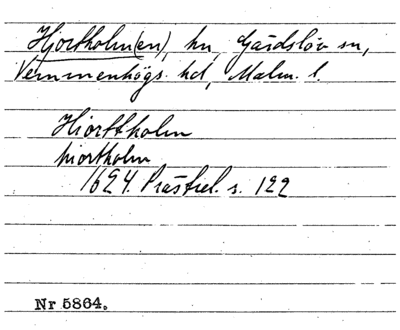 Hjortholm(en), hn, Gärdslöv sn,
Vemmenhögs hd, Malm. l.
Hiorttholm
hiortholm
1624. Prästrel. s. 122
Nr 5864.